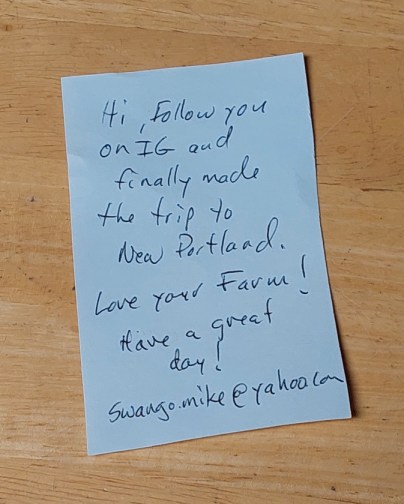 Hi, Follow you
on IG and
finally made
the trip to
New Portland.
Love your Farm!
Have a great
day!
swango.mike@yahoo.com